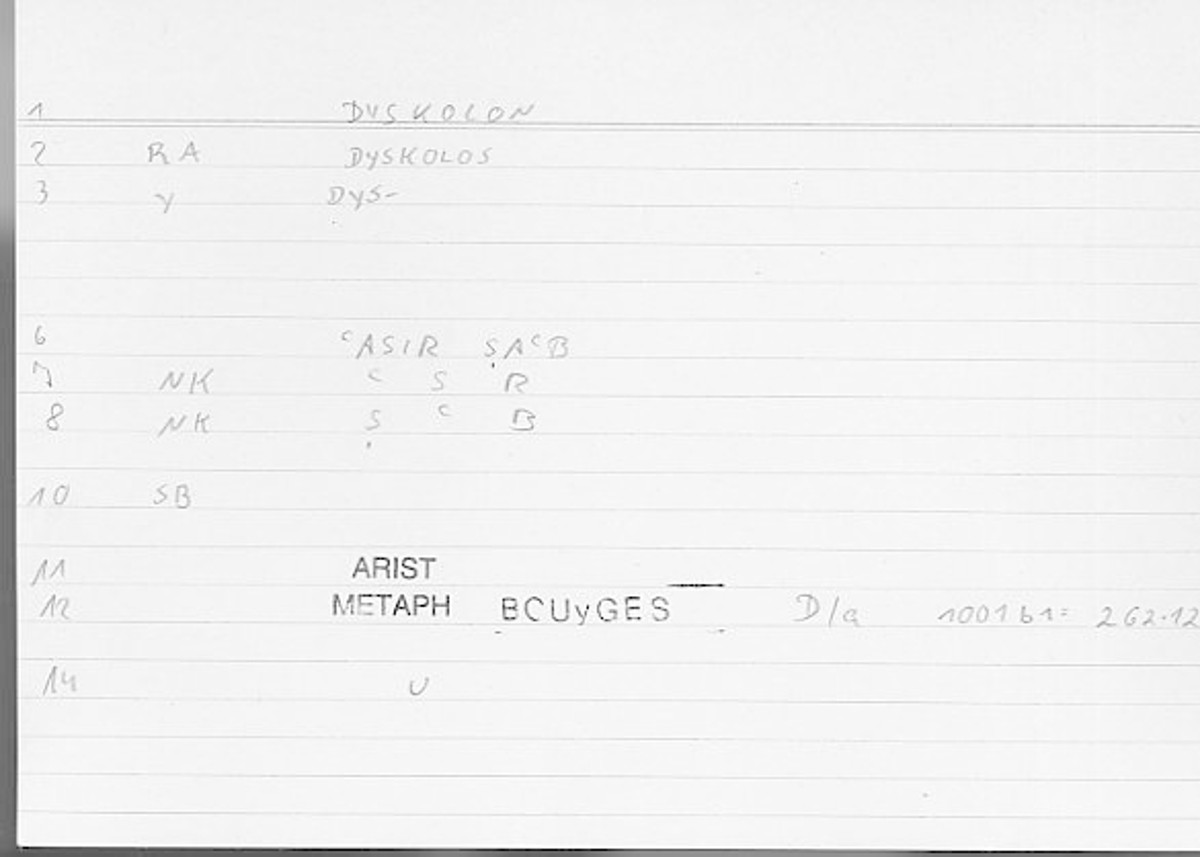 1 DYSKOLON
2 RA DYSKOLOS
3 y DYS-
6 ᶜASIR ṢAᶜB
7 NK ᶜ S R
8 NK Ṣ ᶜ B
10 SB
11 ARIST
12 METAPH BCUyGES D/a 1001b1= 262.12
14 U